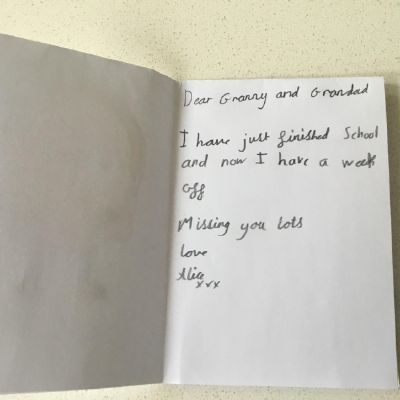 Dear Granny and Grandad
I have just finished School
and now I have a week
off
Missing you lots
love
Alice
xxx